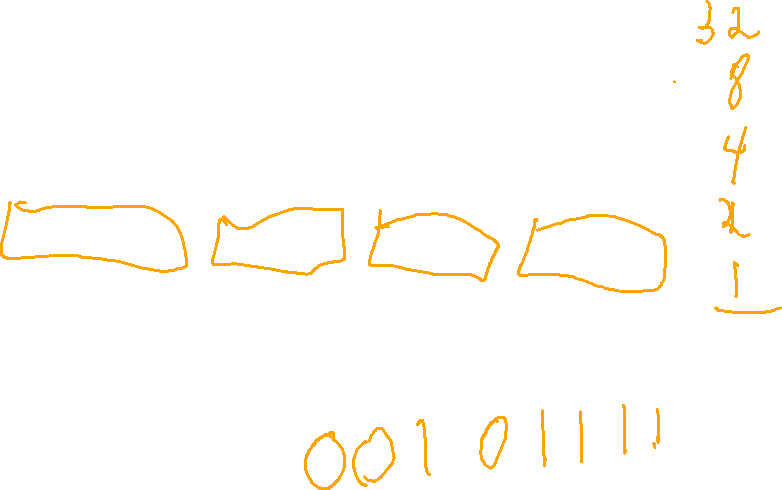 32
8
4
2
1
001 01111